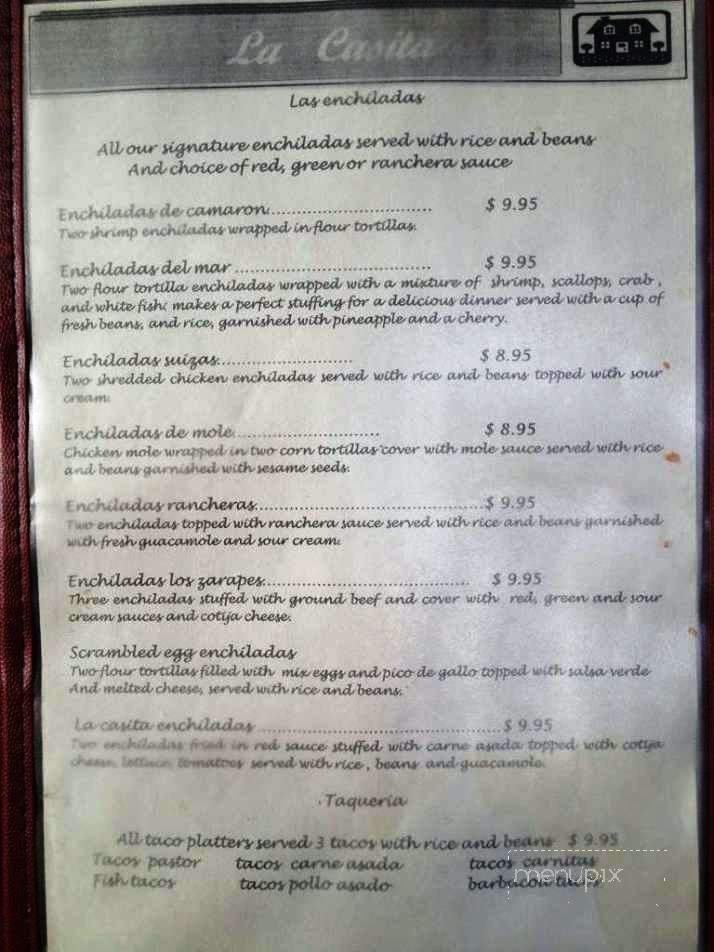 La Casita
Las enchiladas
All our signature enchiladas served with rice and beans
And choice of red, green or ranchera sauce
Enchiladas de camaron.............................. $ 9.95
Two shrimp enchiladas wrapped in flour tortillas.
Enchiladas del mar .................................... $ 9.95
Two flour tortilla enchiladas wrapped with a mixture of shrimp, scallops, crab ,
and white fish; makes a perfect stuffing for a delicious dinner served with a cup of
fresh beans, and rice, garnished with pineapple and a cherry.
Enchiladas suizas......................... $ 8.95
Two shredded chicken enchiladas served with rice and beans topped with sour
cream.
Enchiladas de mole........................... $ 8.95
Chicken mole wrapped in two corn tortillas cover with mole sauce served with rice
and beans garnished with sesame seeds.
Enchiladas rancheras...........................................$ 9.95
Two enchiladas topped with ranchera sauce served with rice and beans garnished
with fresh guacamole and sour cream.
Enchiladas los zarapes...................................... $ 9.95
Three enchiladas stuffed with ground beef and cover with red, green and sour
cream sauces and cotija cheese.
Scrambled egg enchiladas
Two flour tortillas filled with mix eggs and pico de gallo topped with salsa verde
And melted cheese, served with rice and beans.
La casita enchiladas .............................................$ 9.95
Two enchiladas fried in red sauce stuffed with carne asada topped with cotija
cheese, lettuce, tomatoes served with rice , beans and guacamole.
Taqueria
All taco platters served 3 tacos with rice and beans $ 9.95
Tacos pastor tacos carne asada tacos carnitas
Fish tacos tacos pollo asado barbacoa tacos
menupix